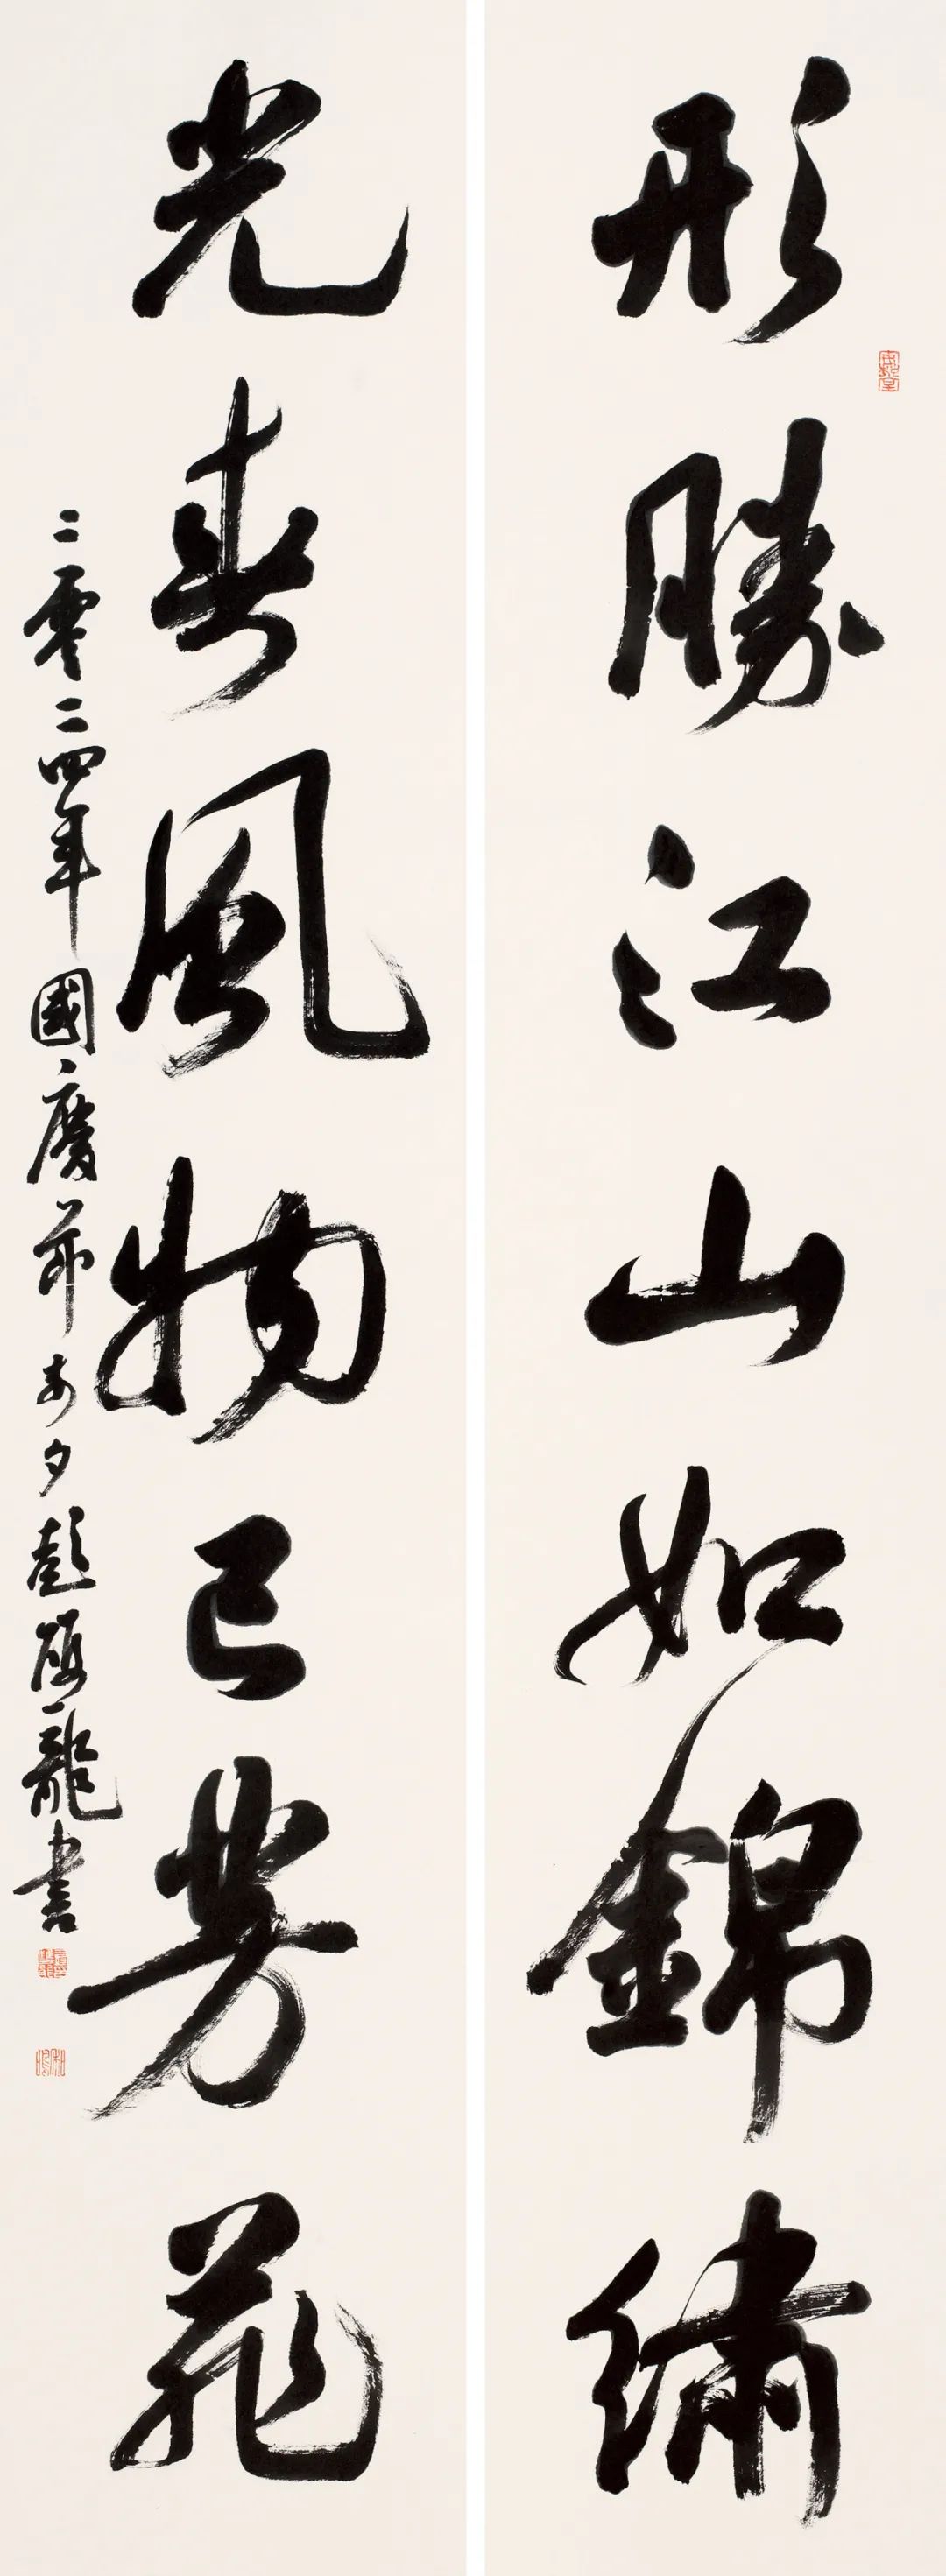 形勝江山如錦繡
光春風物已芳菲
二零二四年國慶節前夕彭雙龍書